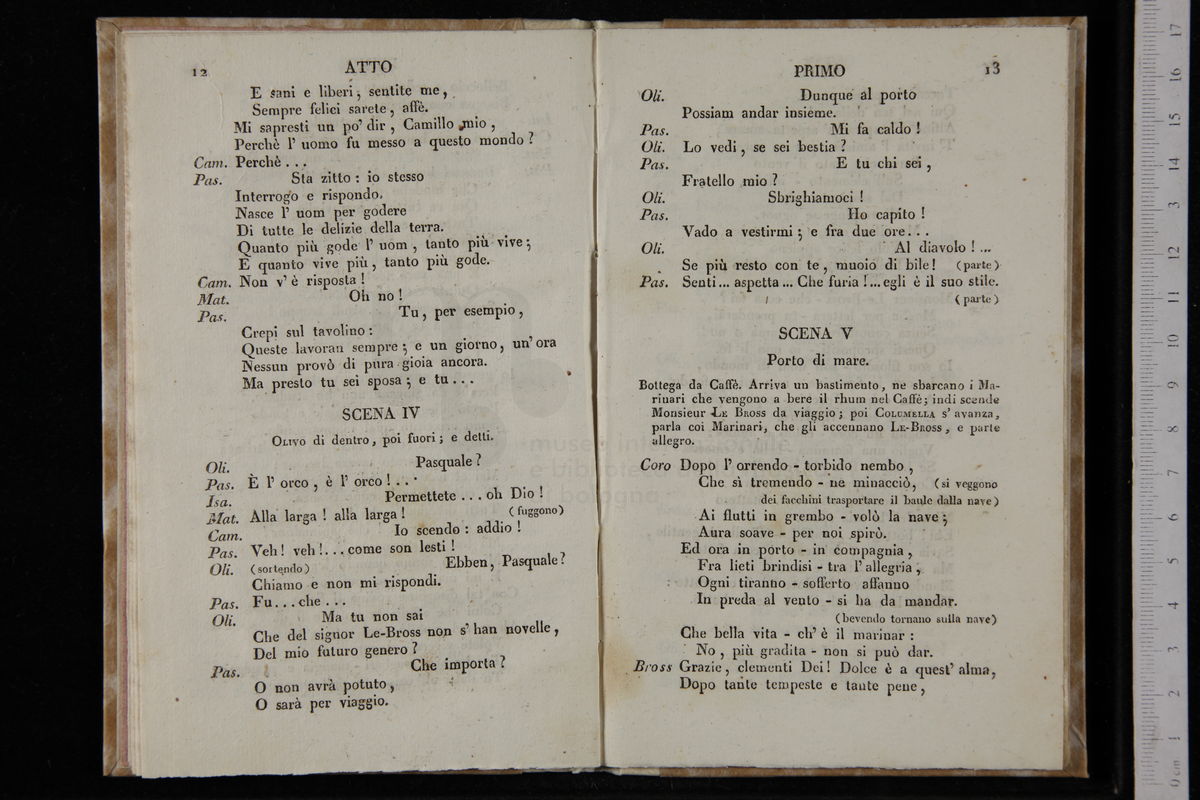 12
ATTO
E sani e liberi; sentite me,
Sempre felici sarete, affè.
Mi sapresti un po' dir, Camillo mio,
Perchè l' uomo fu messo a questo mondo?
Cam. Perchè...
Pas. Sta zitto: io stesso
Interrogo e rispondo.
Nasce l' uom per godere
Di tutte le delizie della terra.
Quanto più gode l' uom, tanto più vive;
E quanto vive più, tanto più gode.
Cam. Non v' è risposta!
Mat. Oh no!
Pas. Tu, per esempio,
Crepi sul tavolino:
Queste lavoran sempre; e un giorno, un' ora
Nessun provò di pura gioia ancora.
Ma presto tu sei sposa; e tu...
SCENA IV
OLIVO di dentro, poi fuori; e detti.
Oli. Pasquale?
Pas. È l' orco, è l' orco!...
Isa. Permettete... oh Dio!
Mat. Alla larga! alla larga! (fuggono)
Cam. Io scendo: addio!
Pas. Veh! veh!... come son lesti!
Oli. (sortendo) Ebben, Pasquale?
Chiamo e non mi rispondi.
Pas. Fu...che...
Oli. Ma tu non sai
Che del signor Le-Bross non s' han novelle,
Del mio futuro genero?
Pas. Che importa?
O non avrà potuto,
O sarà per viaggio.
PRIMO
13
Oli. Dunque al porto
Possiam andar insieme.
Pas. Mi fa caldo!
Oli. Lo vedi, se sei bestia?
Pas. E tu chi sei,
Fratello mio?
Oli. Sbrighiamoci!
Pas. Ho capito!
Vado a vestirmi; e fra due ore...
Oli. Al diavolo!...
Se più resto con te, muoio di bile! (parte)
Pas. Senti... aspetta... Che furia!... egli è il suo stile.
(parte)
SCENA V
Porto di mare.
Bottega da Caffè. Arriva un bastimento, ne sbarcano i Ma-
rinari che vengono a bere il rhum nel Caffè; indi scende
Monsieur LE BROSS da viaggio; poi COLUMELLA s' avanza,
parla coi Marinari, che gli accennano LE-BROSS, e parte
allegro.
Coro Dopo l' orrendo - torbido nembo,
Che sì tremendo - ne minacciò, (si veggono
dei facchini trasportare il baule dalla nave)
Ai flutti in grembo - volò la nave;
Aura soave - per noi spirò.
Ed ora in porto - in compagnia,
Fra lieti brindisi - tra l' allegria,
Ogni tiranno - sofferto affanno
In preda al vento - si ha da mandar.
(bevendo tornano sulla nave)
Che bella vita - ch' è il marinar:
No, più gradita - non si può dar.
Bross Grazie, clementi Dei! Dolce è a quest' alma,
Dopo tante tempeste e tante pene,
museo internazionale
e biblioteca
di bologna
0 cm 1 2 3 4 5 6 7 8 9 10 11 12 13 14 15 16 17